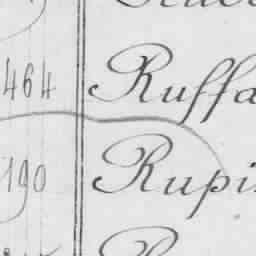 464 Ruffa
190 Rupi